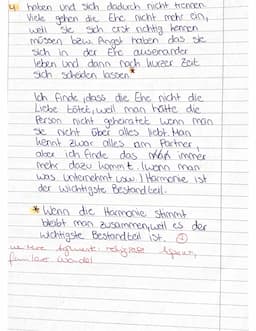 4 haben und sich dadurch nicht trennen.
Viele gehen die Ehe nicht mehr ein,
weil sie sich erst richtig kennen
müssen bzw. Angst haben das sie
sich in der Ehe auseinander
leben und dann nach kurzer Zeit
sich scheiden lassen*
Ich finde, dass die Ehe nicht die
Liebe tötet, weil man hätte die
Person nicht geheiratet wenn man
sie nicht über alles liebt. Man
kennt zwar alles am Partner,
aber ich finde das immer
mehr dazu kommt. (wenn man
was unternehmt usw.) Harmonie ist
der wichtigste Bestandteil.
* Wenn die Harmonie stimmt
bleibt man zusammen, weil es der
wichtigste Bestandteil ist.
weitere Argumente: religiöse
Wandel